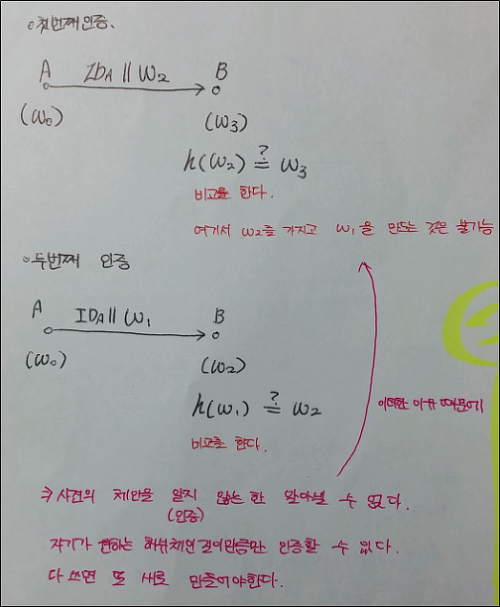 ○첫번째인증.
A IDA || W2 B
(W0) (W3)
h(W2) ?= W3
비교를 한다.
여기서 W2를 가지고 W1을 만드는 것은 불가능
○두번째 인증
A IDA || W1 B
(W0) (W2)
h(W1) ?= W2
이러한 이유 때문에
비교를 한다.
사전의 체인을 알지 않는 한 알아낼 수 없다.
(인증)
자기가 원하는 해쉬체인 길이만큼만 인증할 수 있다.
다 쓰면 또 새로 만들어야한다.